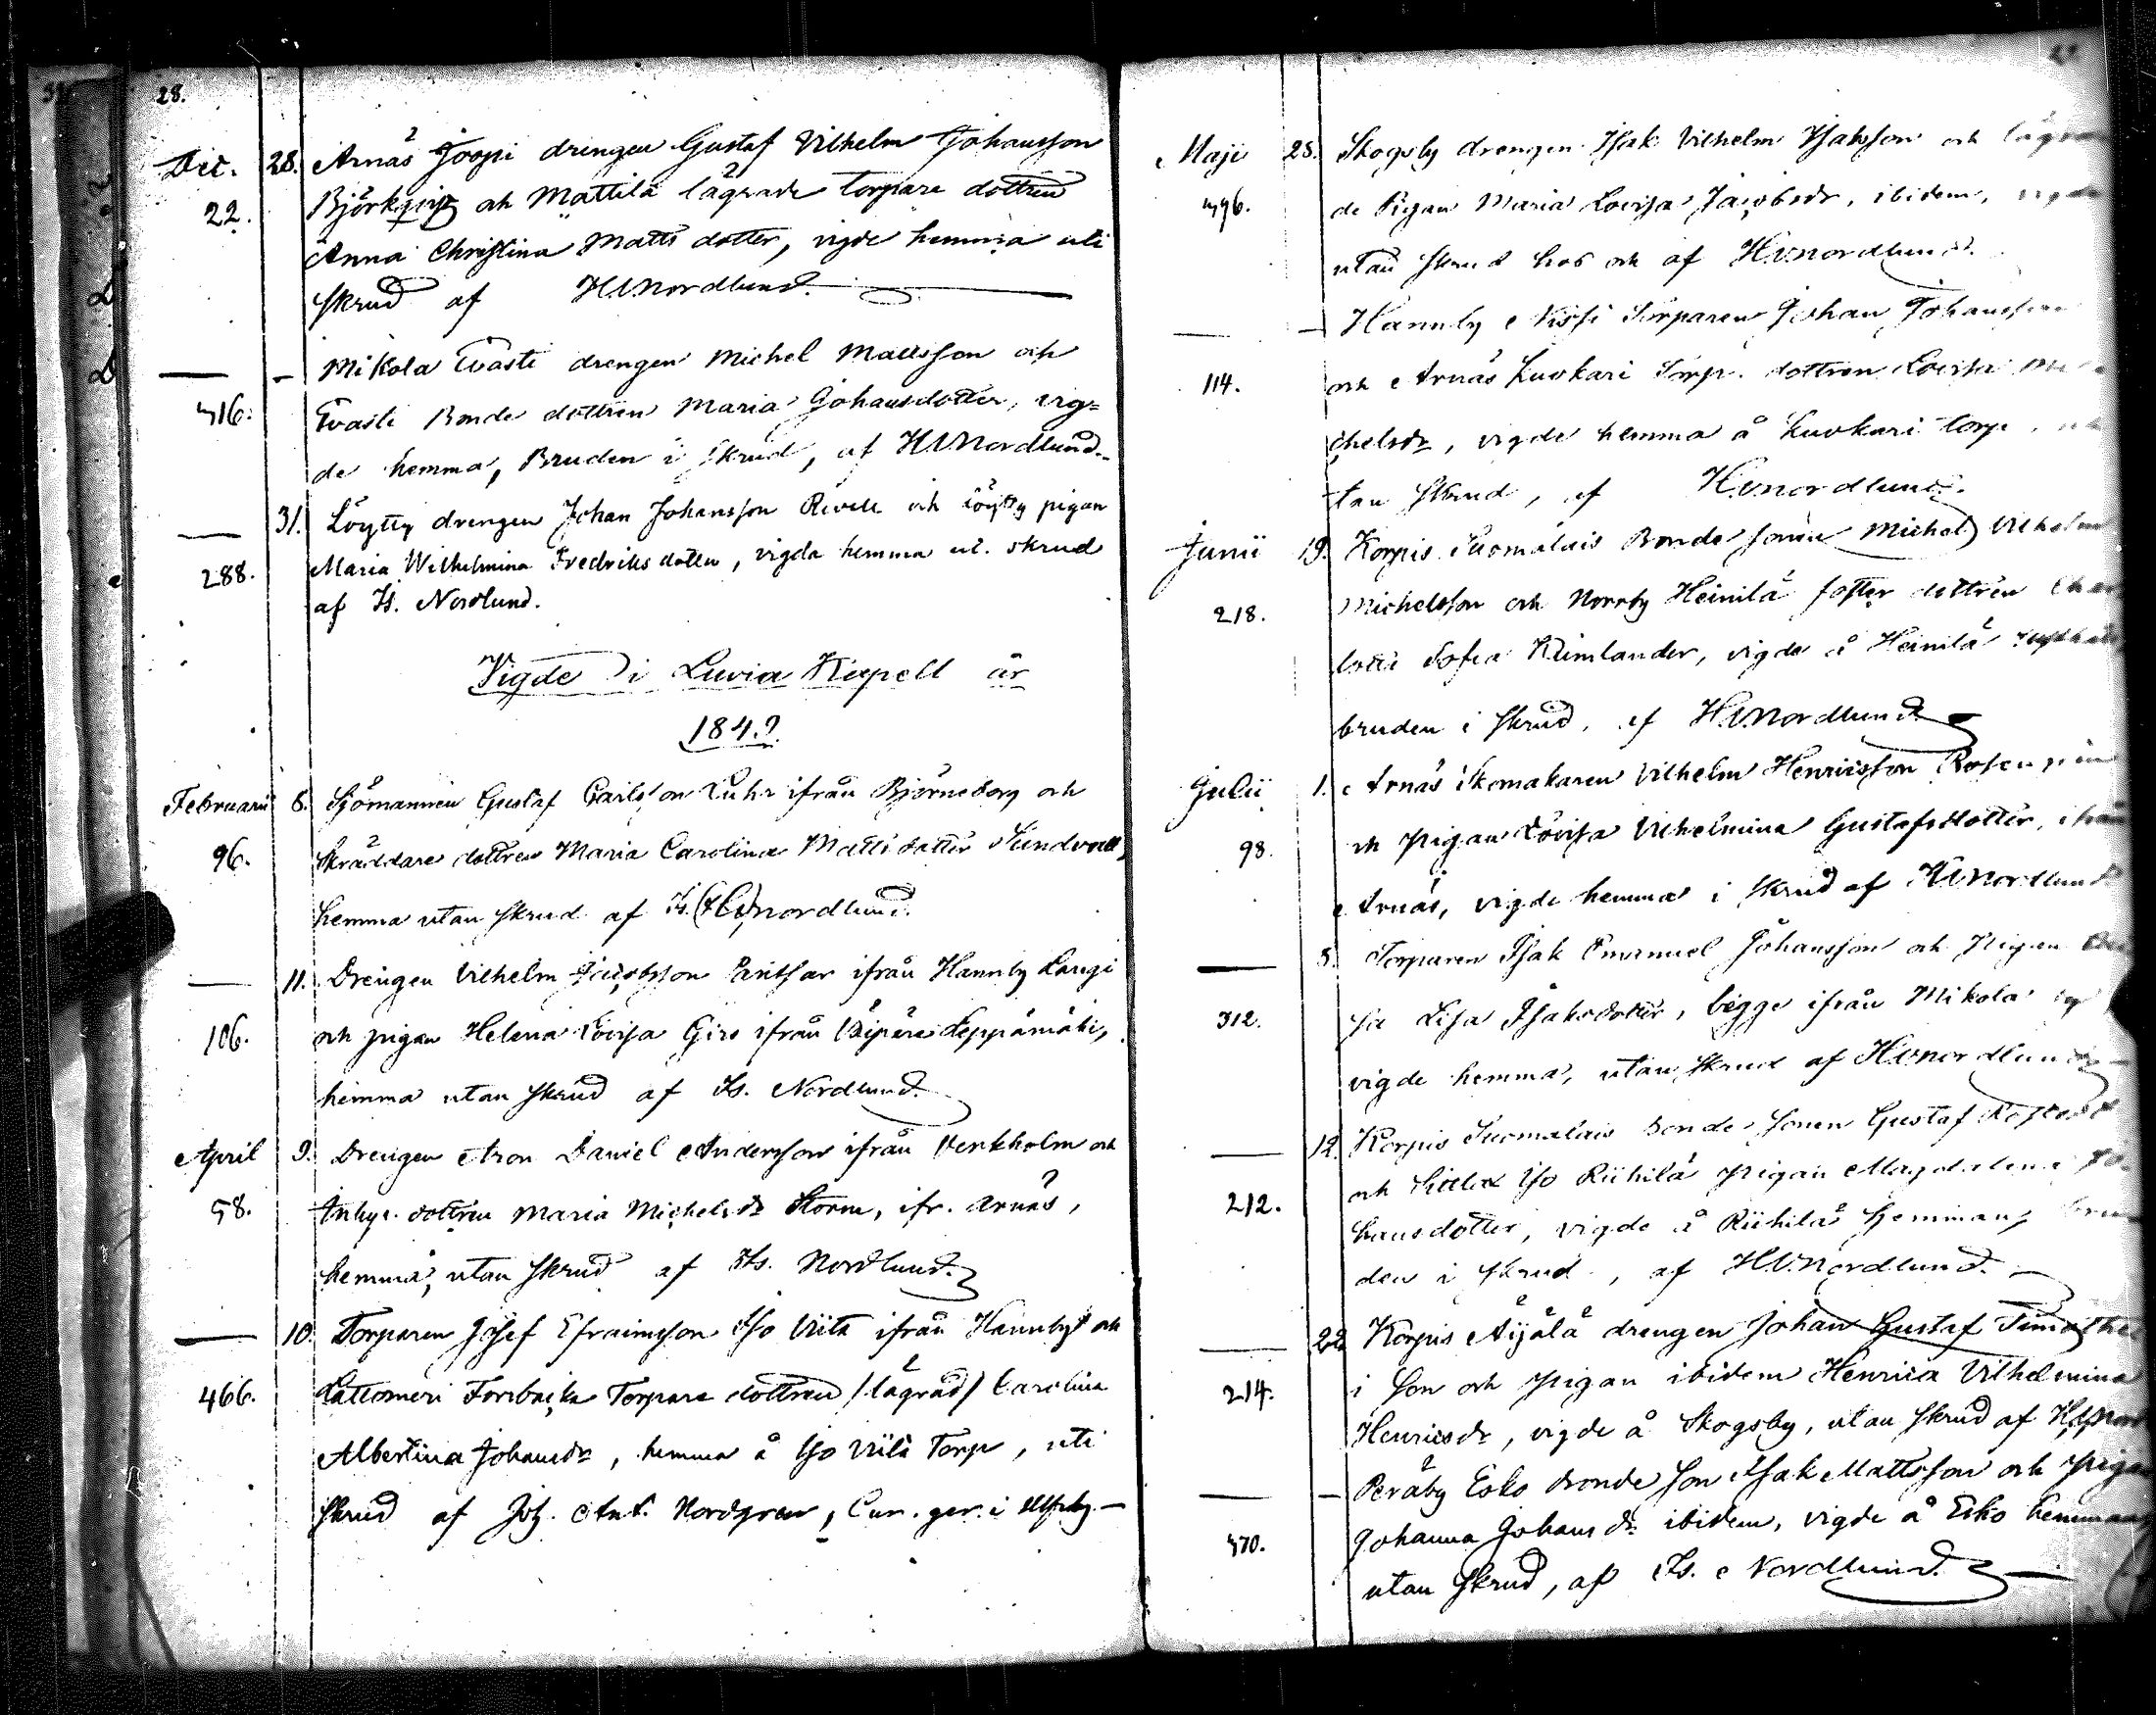 28.
Dec. 28. Arnäs Joopi drengen Gustaf Vilhelm Johansson
22. Björkqvist och Mattila lägrade Torpare dottren
Anna Christina Matts dotter, vigde hemma uti
skrud af H.V. Nordlund.
— — Mikola Evasti drengen Michel Mattsson och
416. Evasti Bonde dottren Maria Johansdotter, vig=
de hemma, Bruden i skrud, af H.V. Nordlund.
— 31. Löytty drengen Johan Johansson Revell och Löytty pigan
288. Maria Wilhelmina Fredriksdotter, vigda hemma ut. skrud
af Is. Nordlund.
Vigde i Luvia Kapell år
184
Februarii 6. Sjömannen Gustaf Carlsson Luhr ifrån Björneborg och
96. Skräddare dottren Maria Carolina Matts dotter Sundvall,
hemma utan skrud af Is. Nordlund.
— 11. Drengen Vilhelm Jacobsson ifrån Hannby Langi
106. och pigan Helena Lovisa Girs ifrån Leppämäki,
hemma utan skrud af Is. Nordlund.
April 9. Drengen Aron Daniel Andersson ifrån Verkholm och
58. Inhys. dottren Maria Michelsdr Storm, ifr. Arnäs,
hemma, utan skrud af Is. Nordlund.
— 10. Torparen Josef Efraimsson Iso Viita ifrån Hannby och
466. Lattomeri Torrbacka Torpare dottren /lägrad/ Carolina
Albertina Johansdr, hemma å Iso Viita Torp, uti
skrud af Joh. Ant. Nordgren, Cur. ger. i Ulfsby. —
Maji 28. Skogsby drengen Isak Vilhelm Isaksson och lägra
496. de Pigan Maria Lovisa Jacobsdr, ibidem, vigde
utan skrud hos och af H.V. Nordlund.
— — Hannby Nissi Torparen Johan Johansson
114. och Arnäs Luokari Torp. dottren Lovisa Mi
chelsdr, vigde hemma å Luokari torp, u
tan skrud, af H.V. Nordlund.
Junii 19. Korpis Suomalais Bonde sonen Michel Vilhelm
218. Michelsson och Norrby Heinilä foster dottren Char
lotta Sofia Kumlander, vigde å Heinilä
bruden i skrud, af H.V. Nordlund
Julii 1. Arnäs Skomakaren Vilhelm Henricsson
98. och pigan Lovisa Vilhelmina Gustafsdotter, ifrån
Arnäs, vigde hemma i skrud af H.V. Nordlund
— 5. Torparen Isak Emanuel Johansson och Pigan
312. sa Lisa Isaksdotter, bägge ifrån Mikola by
vigde hemma, utan skrud af H.V. Nordlund
— 12. Korpis Suomalais Bonde sonen Gustaf
212. och Sasslax Iso Riihilä pigan Magdalena Jo
hansdotter, vigde å Riihilä hemman, bru
den i skrud, af H.V. Nordlund. —
— 22. Korpis Äijälä drengen Johan Gustaf Timothei
214. i son och pigan ibidem Henrica Vilhelmina
Henricsdr, vigde å Skogsby, utan skrud af
— — Peräby Esko Bonde son Isak Mattsson och pigan
470. Johanna Johansdr ibidem, vigde å Esko hemman
utan skrud, af Is. Nordlund. —